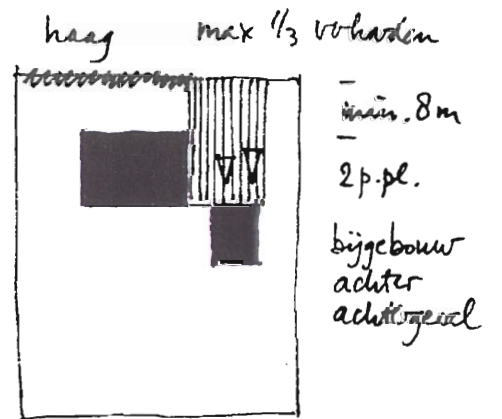 haag
max 1/3 verharden
min. 8m
2 p.pl.
bijgebouw
achter
achtergevel